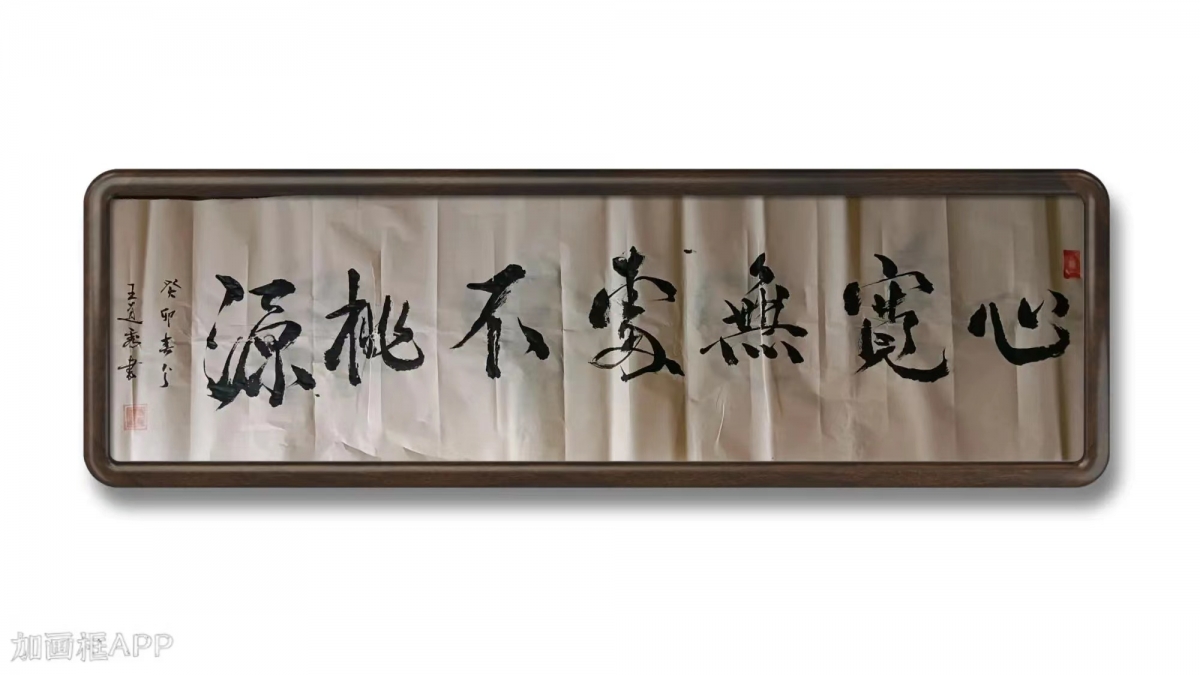 心寬無處不桃源
癸卯春分
王道書
加画框APP